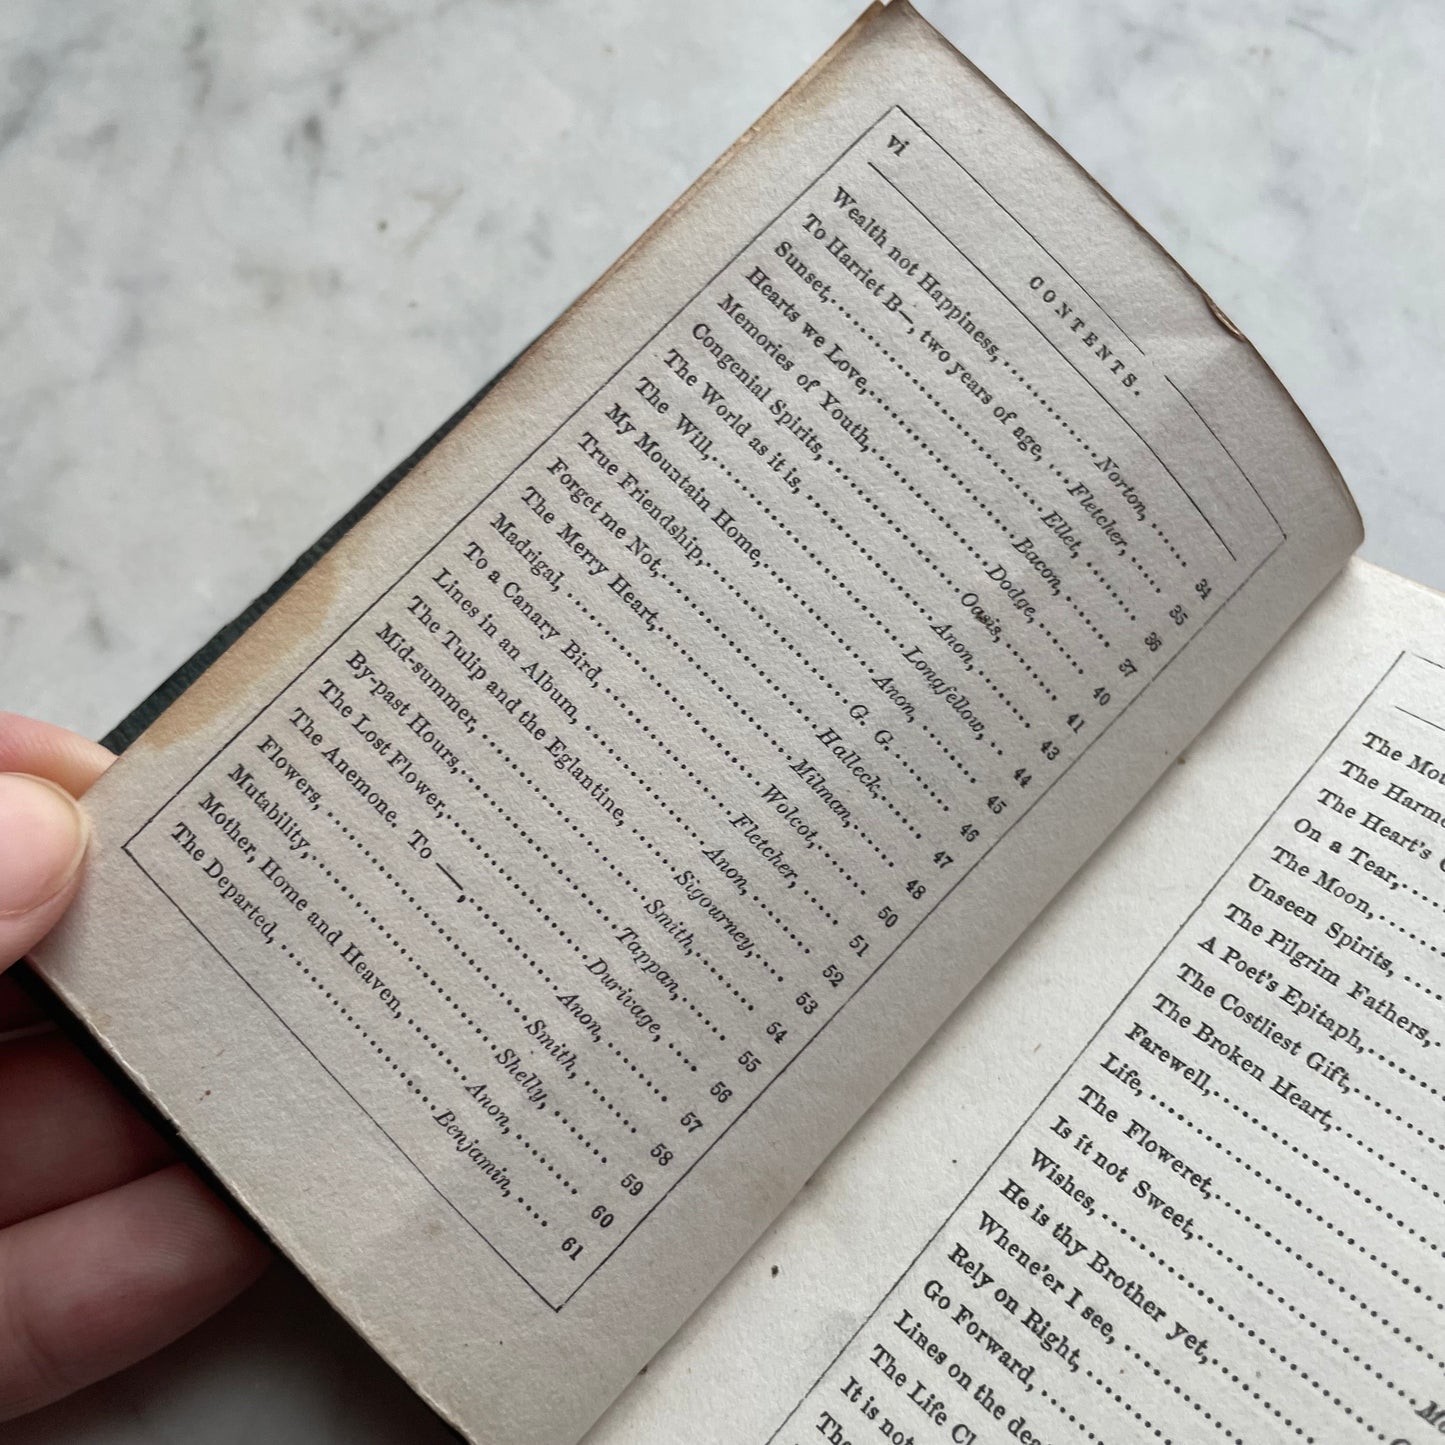 vi CONTENTS.
Wealth not Happiness,..............Norton,...... 34
To Harriet B—, two years of age, ...Fletcher,...... 35
Sunset,..............Ellet,...... 36
Hearts we Love,..............Bacon,...... 37
Memories of Youth,..............Dodge,...... 40
Congenial Spirits,..............Oasis,...... 41
The World as it is,..............Anon,...... 43
The Will,..............Longfellow,.. 44
My Mountain Home,..............Anon,...... 45
True Friendship,..............G. G....... 46
Forget me Not,..............Halleck,...... 47
The Merry Heart,..............Milman,...... 48
Madrigal,..............Wolcot,...... 50
To a Canary Bird,..............Fletcher,...... 51
Lines in an Album,..............Anon,...... 52
The Tulip and the Eglantine,......Sigourney,.... 53
Mid-summer,..............Smith,...... 54
By-past Hours,..............Tappan,...... 55
The Lost Flower,..............Durivage,.... 56
The Anemone. To —,..............Anon,...... 57
Flowers,..............Smith,...... 58
Mutability,..............Shelly,...... 59
Mother, Home and Heaven,......Anon,...... 60
The Departed,..............Benjamin,.... 61
The
The
The Heart's
On a Tear,
The Moon,
Unseen Spirits,
The Pilgrim Fathers,
A Poet's Epitaph,
The Costliest Gift,
The Broken Heart,
Farewell,
Life,
The Floweret,
Is it not Sweet,
Wishes,
He is thy Brother yet,
Whene'er I see,
Rely on Right,
Go Forward,
Lines on the
The Life
It is not
The